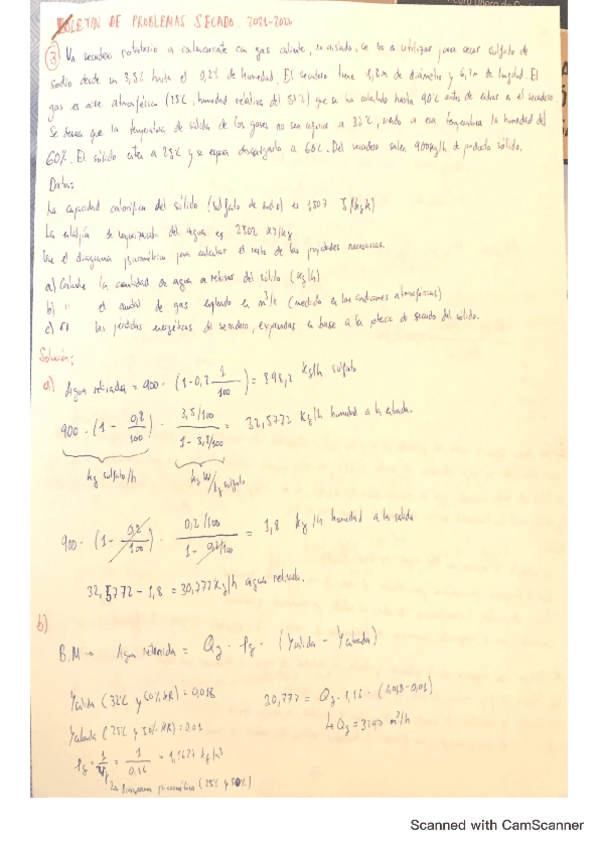 BOLETIN DE PROBLEMAS SECADO 2021-2022
3 Un secadero rotatorio a calentado con gas caliente, no aislado, se va a utilizar para secar sulfato de
sodio desde un 3,5% hasta el 0,2% de humedad. El secadero tiene 1,2m de diámetro y 6,7m de longitud. El
gas es aire atmosférico (25ºC, humedad relativa del 50%) que se ha calentado hasta 90ºC antes de entrar en el secadero.
Se desea que la temperatura de salida de los gases no sea inferior a 32ºC, siendo a esa temperatura la humedad del
60%. El sólido entra a 25ºC y se espera descargarlo a 60ºC. Del secadero salen 900kg/h de producto sólido.
Datos:
La capacidad calorífica del sólido (sulfato de sodio) es 1507 J/(kg K)
La entalpía de vaporización del agua es 2502 KJ/kg
Use el diagrama psicrométrico para calcular el resto de las propiedades necesarias.
a) Calcule la cantidad de agua a retirar del sólido (kg/h)
b) " el caudal de gas empleado en m³/h (medido en las condiciones atmosféricas)
c) " las pérdidas energéticas de secadero, expresadas en base a la potencia de secado del sólido.
Solución:
a) Agua retirada = 900 · (1-0,2 1/100) = 898,2 kg/h sulfato
900 · (1 - 0,2/100) · 3,5/100 / 1 - 3,5/100 = 32,5772 kg/h humedad a la entrada.
kg sulfato/h kg W/kg sulfato
900 · (1 - 0,2/100) · 0,2/100 / 1 - 0,2/100 = 1,8 kg/h humedad a la salida
32,5772 - 1,8 = 30,777 kg/h agua retirada.
b)
B.M → Agua retenida = Qg · ρg · (Ysalida - Yentrada)
Ysalida (32ºC y 60% HR) = 0,018 30,777 = Qg · 1,16 · (0,018-0,01)
Yentrada (25ºC y 50% HR) = 0,01 ↳ Qg = 3290 m³/h
ρg = 1/ = 1/0,86 = 1,1627 kg/m³
↳ Diagrama psicrométrico (25ºC y 50%)
Scanned with CamScanner